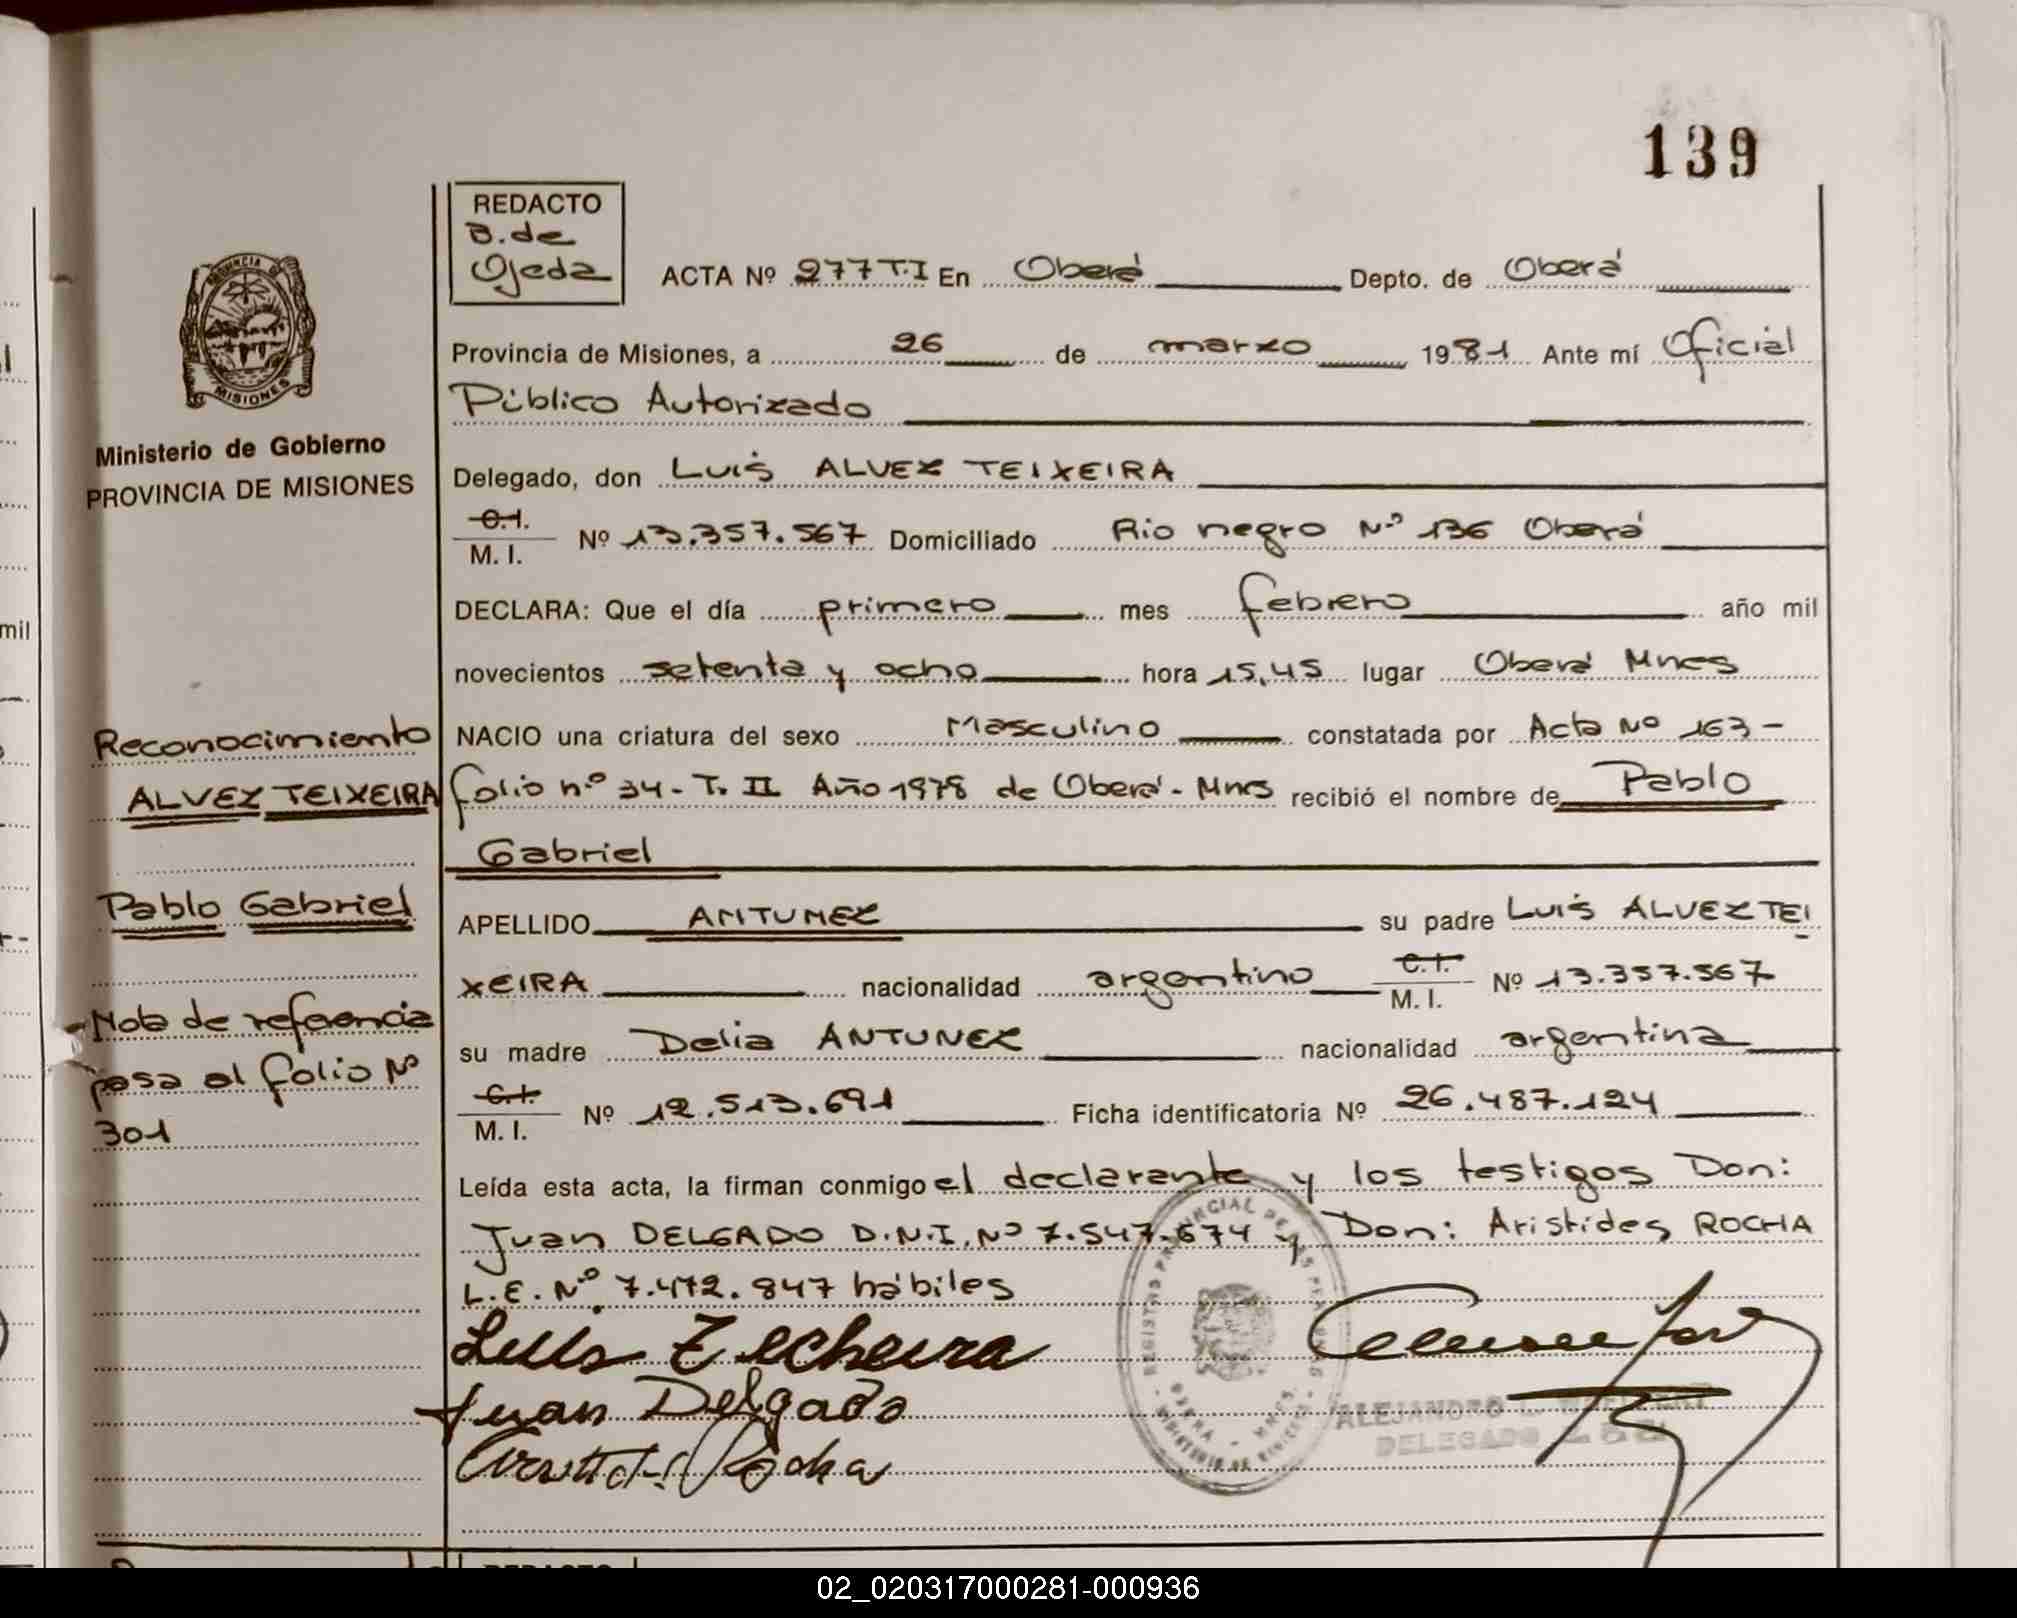 139
REDACTO
B. de
Ojeda
ACTA Nº 277 T.I En Oberá Depto. de Oberá
Provincia de Misiones, a 26 de marzo 1981 Ante mí Oficial
Público Autorizado
Delegado, don Luis ALVEZ TEIXEIRA
C.I.
M. I. Nº 13.357.567 Domiciliado Rio negro Nº 136 Oberá
DECLARA: Que el día primero mes febrero año mil
novecientos setenta y ocho hora 15,45 lugar Oberá Mnes
NACIO una criatura del sexo Masculino constatada por Acta Nº 163 -
folio nº 34 - T. II Año 1978 de Oberá - Mnes recibió el nombre de Pablo
Gabriel
APELLIDO ANTUNEZ su padre Luis ALVEZ TEI
XEIRA nacionalidad argentino C.I. M. I. Nº 13.357.567
su madre Delia ANTUNEZ nacionalidad argentina
C.I.
M. I. Nº 12.513.691 Ficha identificatoria Nº 26.487.124
Leída esta acta, la firman conmigo el declarante y los testigos Don:
Juan DELGADO D.N.I. Nº 7.547.674 y Don: Aristides ROCHA
L.E. Nº 7.472.847 hábiles
Luis Techeira
Juan Delgado
Rocha
ALEJANDRO
DELEGADO
PROVINCIA DE
MISIONES
Ministerio de Gobierno
PROVINCIA DE MISIONES
Reconocimiento
ALVEZ TEIXEIRA
Pablo Gabriel
Nota de referencia
pasa al folio Nº
301
mil
02_020317000281-000936